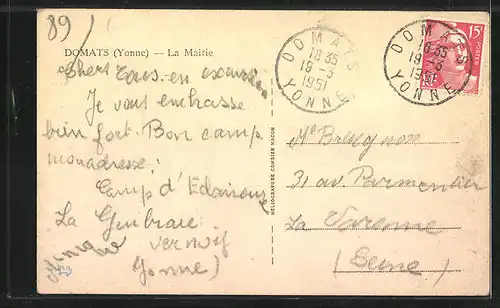 89
DOMATS (Yonne) — La Mairie
Chers tous en excursion
Je vous embrasse
bien fort. Bon camp
mon adresse:
Camp d'Eclaireurs
La
Yonne)
HELIOGRAVURE COMBIER MACON
DOMATS
18 35
19-3
1951
YONNE
DOMATS
18 35
19-3
1951
YONNE
15F
POSTES
31 av Parmentier
La Varenne
(Seine)